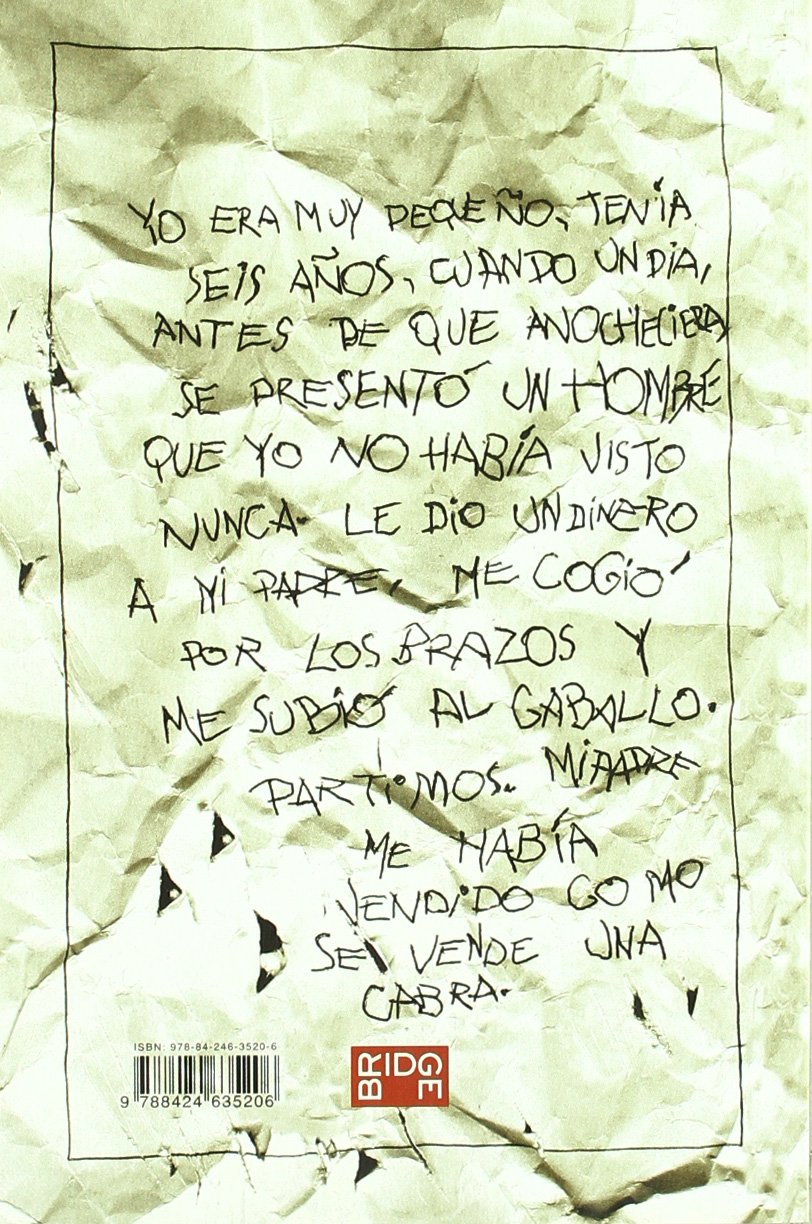 YO ERA MUY PEQUEÑO, TENÍA
SEIS AÑOS, CUANDO UN DÍA,
ANTES DE QUE ANOCHECIERA,
SE PRESENTÓ UN HOMBRE
QUE YO NO HABÍA VISTO
NUNCA. LE DIO UN DINERO
A MI PADRE, ME COGIÓ
POR LOS BRAZOS Y
ME SUBIÓ AL CABALLO.
PARTIMOS. MI PADRE
ME HABÍA
VENDIDO COMO
SE VENDE UNA
CABRA.
ISBN: 978-84-246-3520-6
9 788424 635206
BRIDGE